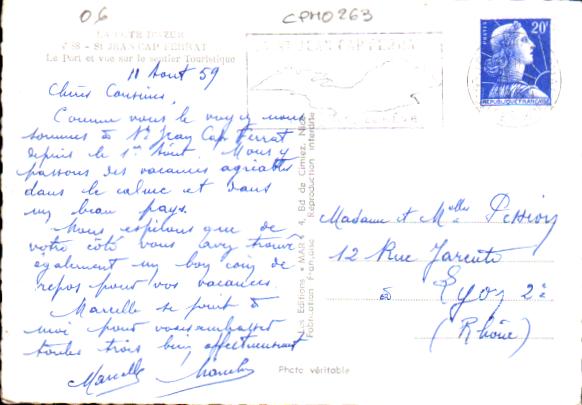 06
CPM0263
LA COTE D'AZUR
ST JEAN CAP FERRAT
Le Port et vue sur le sentier Touristique
ST JEAN CAP FERRAT
POSTES
20F
REPUBLIQUE FRANÇAISE
11 Aout 59
Chères Cousines,
Comme vous le voyez nous
sommes à St Jean Cap Ferrat
depuis le 1er Aout. Nous y
passons des vacances agréables
dans le calme et dans
un beau pays.
Nous espérons que de
votre côté vous avez trouvé
également un bon coin de
repos pour vos vacances.
Marcelle se joint à
moi pour vous embrasser
toutes trois bien affectueusement
Marcelle
Les Editions « MAR » 4, Bd de Cimiez, Nice
Fabrication Française Reproduction interdite
Madame et Melles
12 Rue Jarente
à Lyon 2è
(Rhône)
Photo véritable